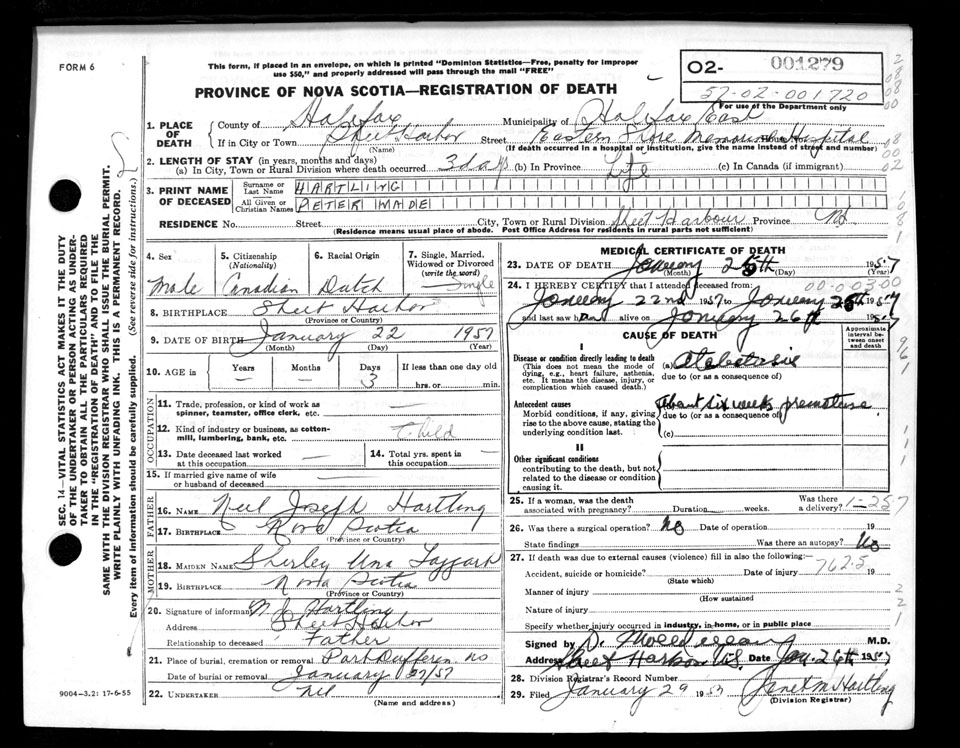 FORM 6
This form, if placed in an envelope, on which is printed "Dominion Statistics—Free, penalty for improper
use $50," and properly addressed will pass through the mail "FREE"
O2- 001279
57-02-001720
For use of the Department only
PROVINCE OF NOVA SCOTIA—REGISTRATION OF DEATH
1. PLACE OF DEATH
County of Halifax Municipality of Halifax East
If in City or Town Sheet Harbor Street Eastern Shore Memorial Hospital
(Name) (If death occurred in a hospital or institution, give the name instead of street and number)
2. LENGTH OF STAY (in years, months and days)
(a) In City, Town or Rural Division where death occurred 3 days (b) In Province Life (c) In Canada (if immigrant)
3. PRINT NAME OF DECEASED
Surname or Last Name HARTLING
All Given or Christian Names PETER
RESIDENCE No. Street City, Town or Rural Division Sheet Harbour Province NS
(Residence means usual place of abode. Post Office Address for residents in rural parts not sufficient)
4. Sex Male
5. Citizenship (Nationality) Canadian
6. Racial Origin Dutch
7. Single, Married, Widowed or Divorced (write the word) Single
8. BIRTHPLACE Sheet Harbor
(Province or Country)
9. DATE OF BIRTH January 22 1957
(Month) (Day) (Year)
10. AGE in Years — Months — Days 3 If less than one day old hrs. or min.
OCCUPATION
11. Trade, profession, or kind of work as spinner, teamster, office clerk, etc. —
12. Kind of industry or business, as cotton-mill, lumbering, bank, etc. Child
13. Date deceased last worked at this occupation —
14. Total yrs. spent in this occupation —
15. If married give name of wife or husband of deceased —
FATHER
16. NAME Neil Joseph Hartling
17. BIRTHPLACE Nova Scotia
(Province or Country)
MOTHER
18. MAIDEN NAME Sherley Una Taggart
19. BIRTHPLACE Nova Scotia
(Province or Country)
20. Signature of informant N J Hartling
Address Sheet Harbor
Relationship to deceased Father
21. Place of burial, cremation or removal Port Dufferin NS
Date of burial or removal January 27/57
22. UNDERTAKER Nil
(Name and address)
9004—3.2: 17-6-55
SEC. 14—VITAL STATISTICS ACT MAKES IT THE DUTY
OF THE UNDERTAKER OR PERSON ACTING AS UNDER-
TAKER TO OBTAIN ALL THE PARTICULARS REQUIRED
IN THE "REGISTRATION OF DEATH" AND TO FILE THE
SAME WITH THE DIVISION REGISTRAR WHO SHALL ISSUE THE BURIAL PERMIT.
WRITE PLAINLY WITH UNFADING INK. THIS IS A PERMANENT RECORD.
Every item of information should be carefully supplied. (See reverse side for instructions.)
MEDICAL CERTIFICATE OF DEATH
23. DATE OF DEATH January 25th 1957
(Month) (Day) (Year)
24. I HEREBY CERTIFY that I attended deceased from:
00-0-03-00
January 22nd 1957 to January 25th 1957
and last saw h alive on January 26th 1957
CAUSE OF DEATH
Approximate interval between onset and death
I
Disease or condition directly leading to death
(This does not mean the mode of dying, e.g., heart failure, asthenia, etc. It means the disease, injury, or complication which caused death.)
(a) Atelectasis
due to (or as a consequence of)
Antecedent causes
Morbid conditions, if any, giving rise to the above cause, stating the underlying condition last.
About six weeks premature
due to (or as a consequence of)
(c)
II
Other significant conditions
contributing to the death, but not related to the disease or condition causing it.
25. If a woman, was the death associated with pregnancy? Duration weeks. Was there a delivery?
1-257
26. Was there a surgical operation? No Date of operation 19
State findings Was there an autopsy? No
27. If death was due to external causes (violence) fill in also the following:—
Accident, suicide or homicide? Date of injury 19
(State which)
762.5
Manner of injury
(How sustained)
Nature of injury
Specify whether injury occurred in industry, in home, or in public place
Signed by M.D.
Address Sheet Harbor N.S. Date Jan. 26th 1957
28. Division Registrar's Record Number
29. Filed January 29 1957 Janet M Hartling
(Division Registrar)